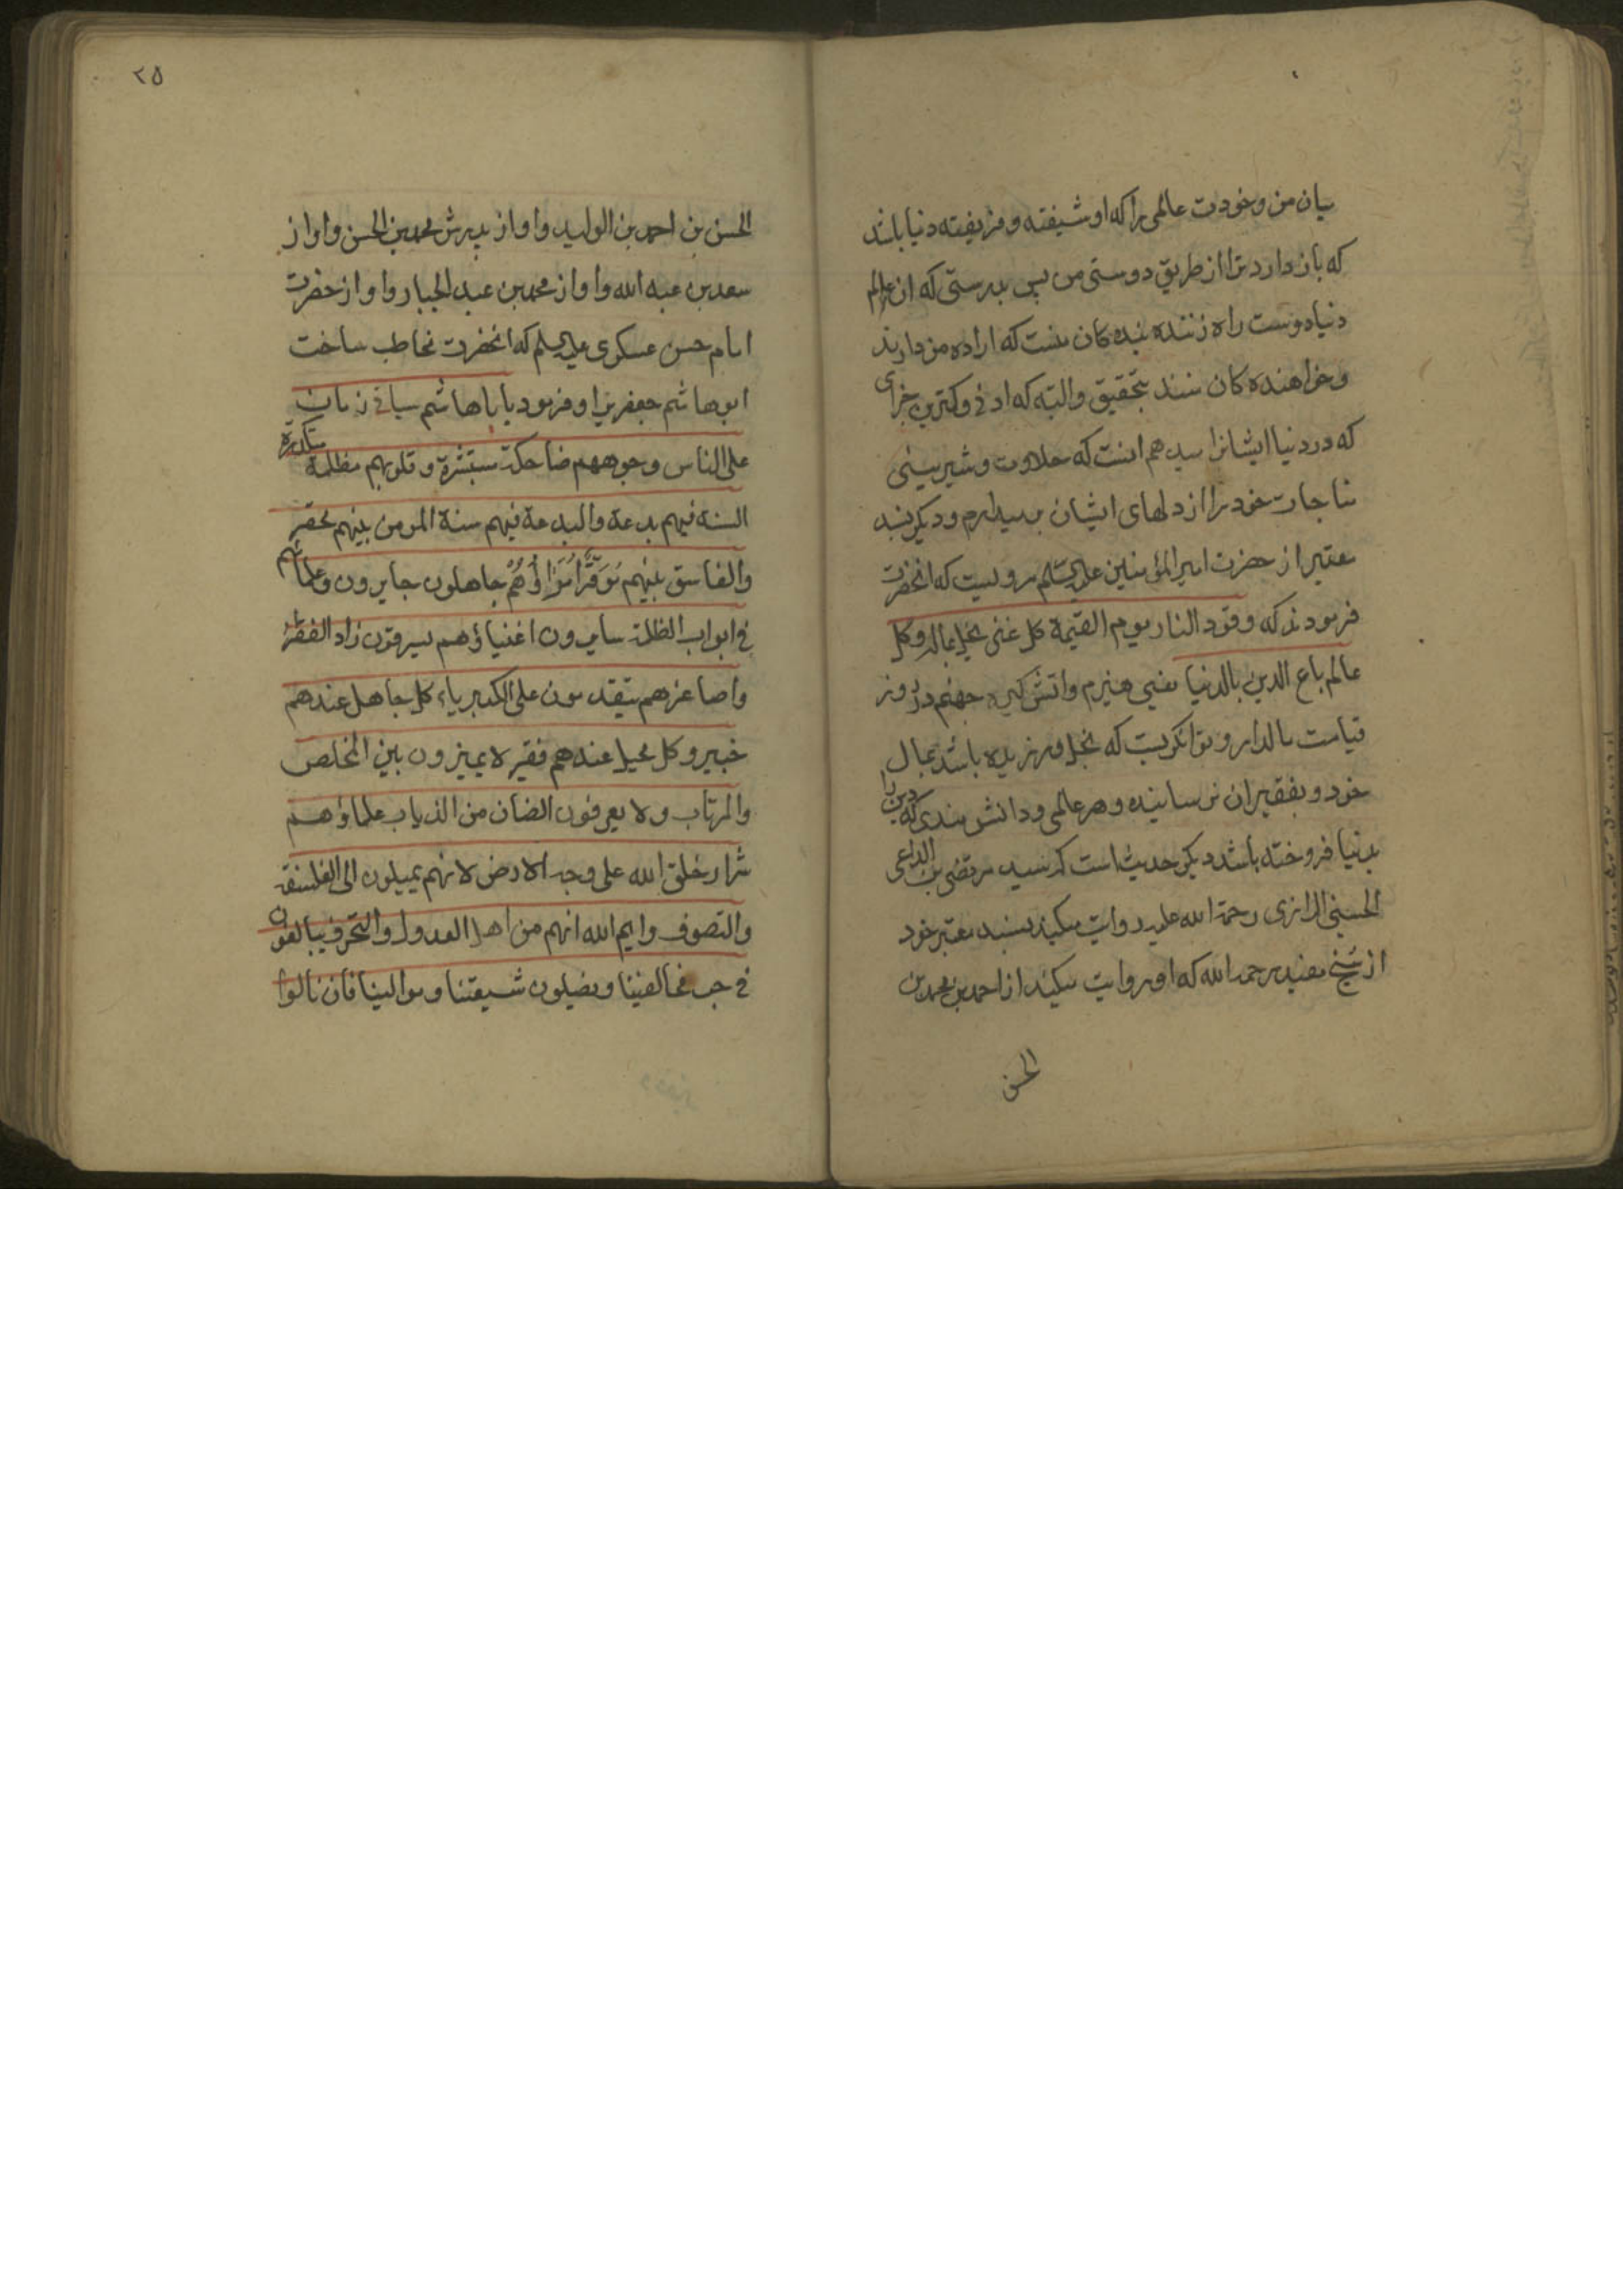 میان من و خودت عالمی را که او شیفته و فریفته دنیا باشد
که باز دارد ترا از طریق دوستی من پس بدرستی که ان عالم
دنیا دوست راه زننده بنده کان منست که اراده من دارند
و خواهنده کان منند بتحقیق والبته که ادنی و کمترین جزای
که در دنیا ایشانرا میدهم انست که حلاوت و شیرینی
مناجات خود را از دلهای ایشان بر میدارم و دیکر بسند
معتبر از حضرت امیر المؤمنین علیه السلم مرویست که انحضرت
فرمودند که وقود النار یوم القیمة کل غنی بخیل بماله و کل
عالم باع الدین بالدنیا یعنی هیزم واتش کیره جهنم در روز
قیامت مالدار و توانکریست که بخل ورزیده باشد بمال
خود و بفقیران نرسانیده و هر عالمی و دانشمندی که دین را
بدنیا فروخته باشد دیکر حدیث است که سید مرتضی بن الداعی
الحسینی الرازی رحمة الله علیه روایت میکند بسند معتبر خود
از شیخ مفید رحمه الله که او روایت میکند از احمد بن محمد بن
الحسن
۲۵
الحسن بن احمد بن الولید و او از پدرش محمد بن الحسن و او از
سعد بن عبد الله و او از محمد بن عبد الجبار و او از حضرت
امام حسن عسکری علیه السلم که انحضرت مخاطب ساخت
ابو هاشم جعفری را و فرمود یا ابا هاشم سیاتی زمان
علی الناس وجوههم ضاحکة مستبشرة و قلوبهم مظلمة متکدرة
السنة فیهم بدعة والبدعة فیهم سنة المومن بینهم محقر
والفاسق بینهم مُوَقَّر اُمَرَاؤُهُمْ جاهلون جایرون وعلمائهم
فی ابواب الظلمة سایرون اغنیاؤهم یسرقون زاد الفقراء
واصاغرهم یتقدمون علی الکبریاء کل جاهل عندهم
خبیر وکل محیل عندهم فقیر لا یمیزون بین المخلص
والمرتاب ولا یعرفون الضان من الذیاب علماؤهم
شرار خلق الله علی وجه الارض لانهم یمیلون الی الفلسفة
والتصوف وایم الله انهم من اهل العدول والتحرف یبالغون
فی حب مخالفینا ویضلون شیعتنا وموالینا فان نالوا